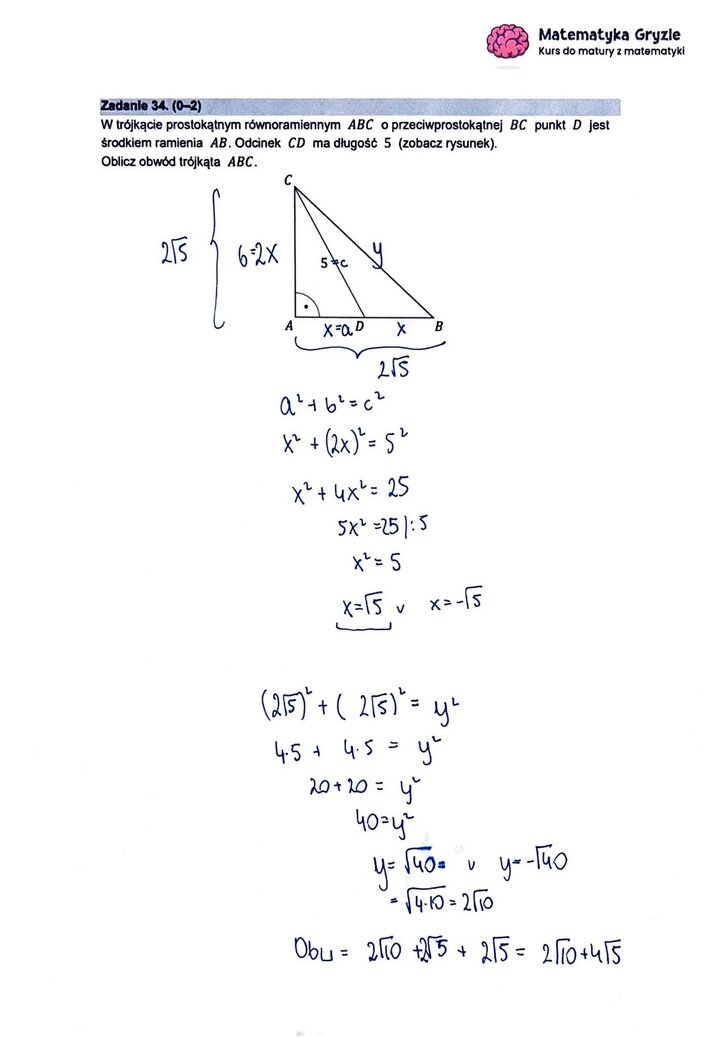 Matematyka Gryzie
Kurs do matury z matematyki
Zadanie 34. (0–2)
W trójkącie prostokątnym równoramiennym ABC o przeciwprostokątnej BC punkt D jest
środkiem ramienia AB. Odcinek CD ma długość 5 (zobacz rysunek).
Oblicz obwód trójkąta ABC.
C
2√5 b=2x 5=c y
A x=a D x B
2√5
a² + b² = c²
x² + (2x)² = 5²
x² + 4x² = 25
5x² = 25 |:5
x² = 5
x=√5 v x=-√5
(2√5)² + ( 2√5)² = y²
4·5 + 4·5 = y²
20+20 = y²
40=y²
y= √40= v y=-√40
= √4·10 = 2√10
Obw = 2√10 +2√5 + 2√5 = 2√10+4√5